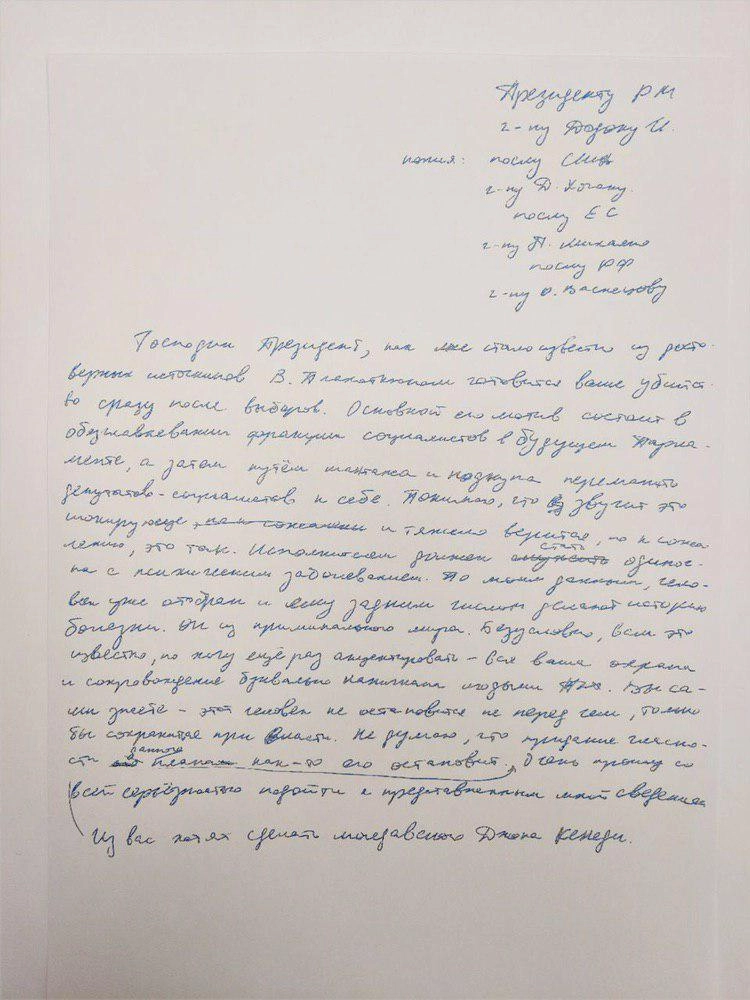 Президенту РМ
г-ну Додону И.
копия: послу США
г-ну Д. Хогану.
послу ЕС
г-ну П. Михалко
послу РФ
г-ну О. Васнецову
Господин Президент, как мне стало известно из досто-
верных источников В. Плахотнюком готовится ваше убийст-
во сразу после выборов. Основной его мотив состоит в
обезглавливании фракции социалистов в будущем Парла-
менте, а затем путём шантажа и подкупа переманить
депутатов-социалистов к себе. Понимаю, что звучит это
шокирующе, и тяжело верится, но к сожа
лению, это так. Исполнителем должен стать одиноч-
ка с психическим заболеванием. По моим данным, чело-
век уже отобран и ему задним числом делают историю
болезни. Он из криминального мира. Безусловно, Вам это
известно, но хочу ещё раз акцентировать - вся ваша охрана
и сопровождение буквально напичкана людьми Вы са-
ми знаете - этот человек не остановится не перед чем, только
бы сохранится при власти. Не думаю, что придание гласно-
сти данного плана как-то его остановит. Очень прошу со
всей серьёзностью подойти к представленным мной сведениям
Из вас хотят сделать молдавского Джона Кенеди.